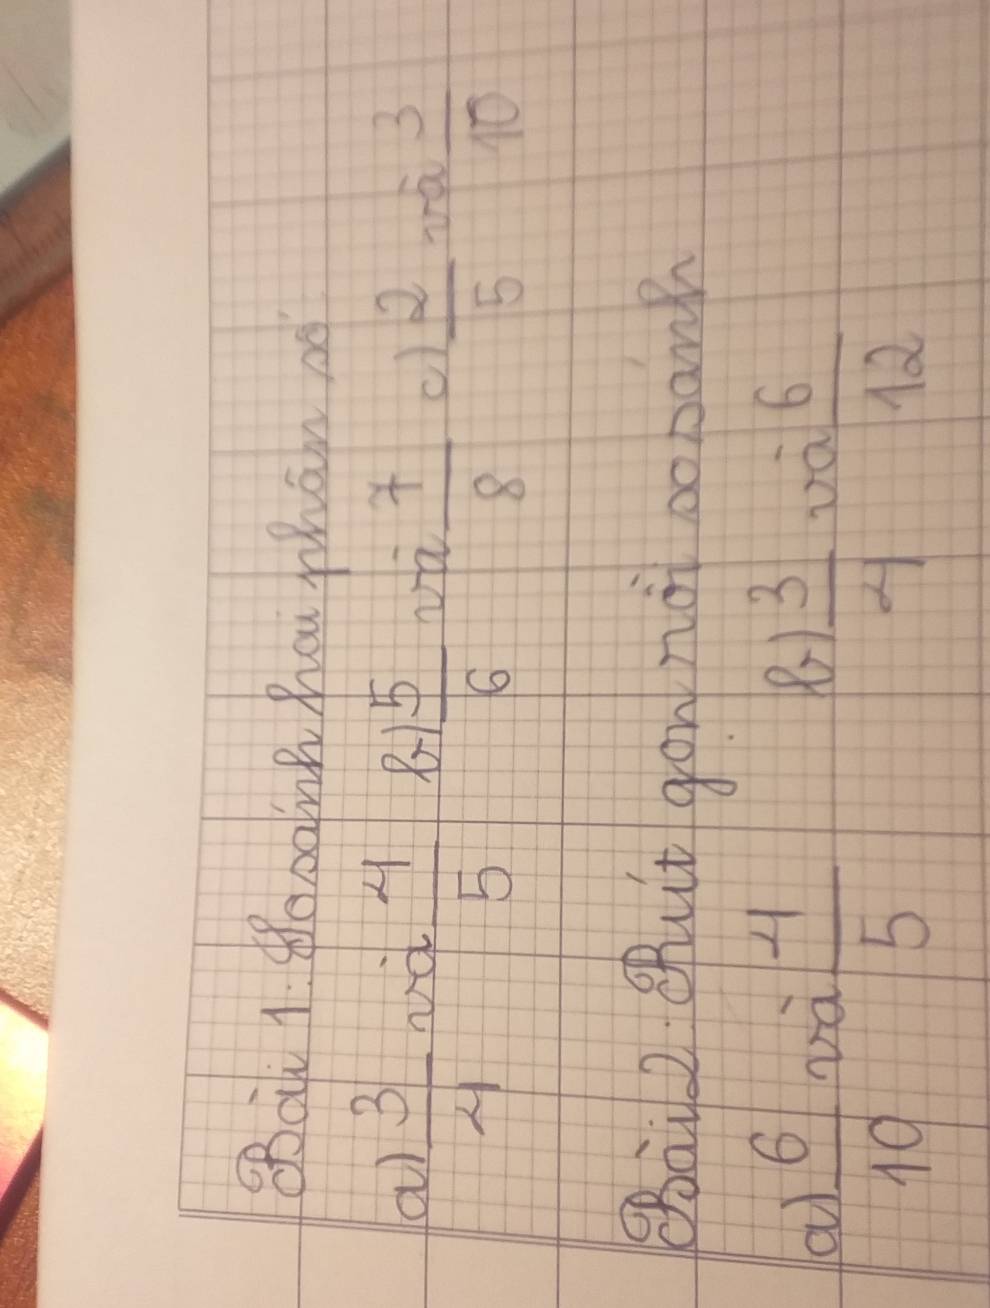 Bài 1: So sánh hai phân số
a) 3/4 và 4/5 b) 5/6 và 7/8 c) 2/5 và 3/10
Bài 2: Rút gọn rồi so sánh
a) 6/10 và 4/5 b) 3/4 và 6/12